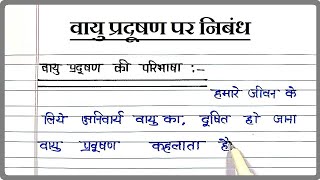 वायु प्रदूषण पर निबंध
वायु प्रदूषण की परिभाषा :-
हमारे जीवन के
लिये अनिवार्य वायु का, दूषित हो जाना
वायु प्रदूषण कहलाता है